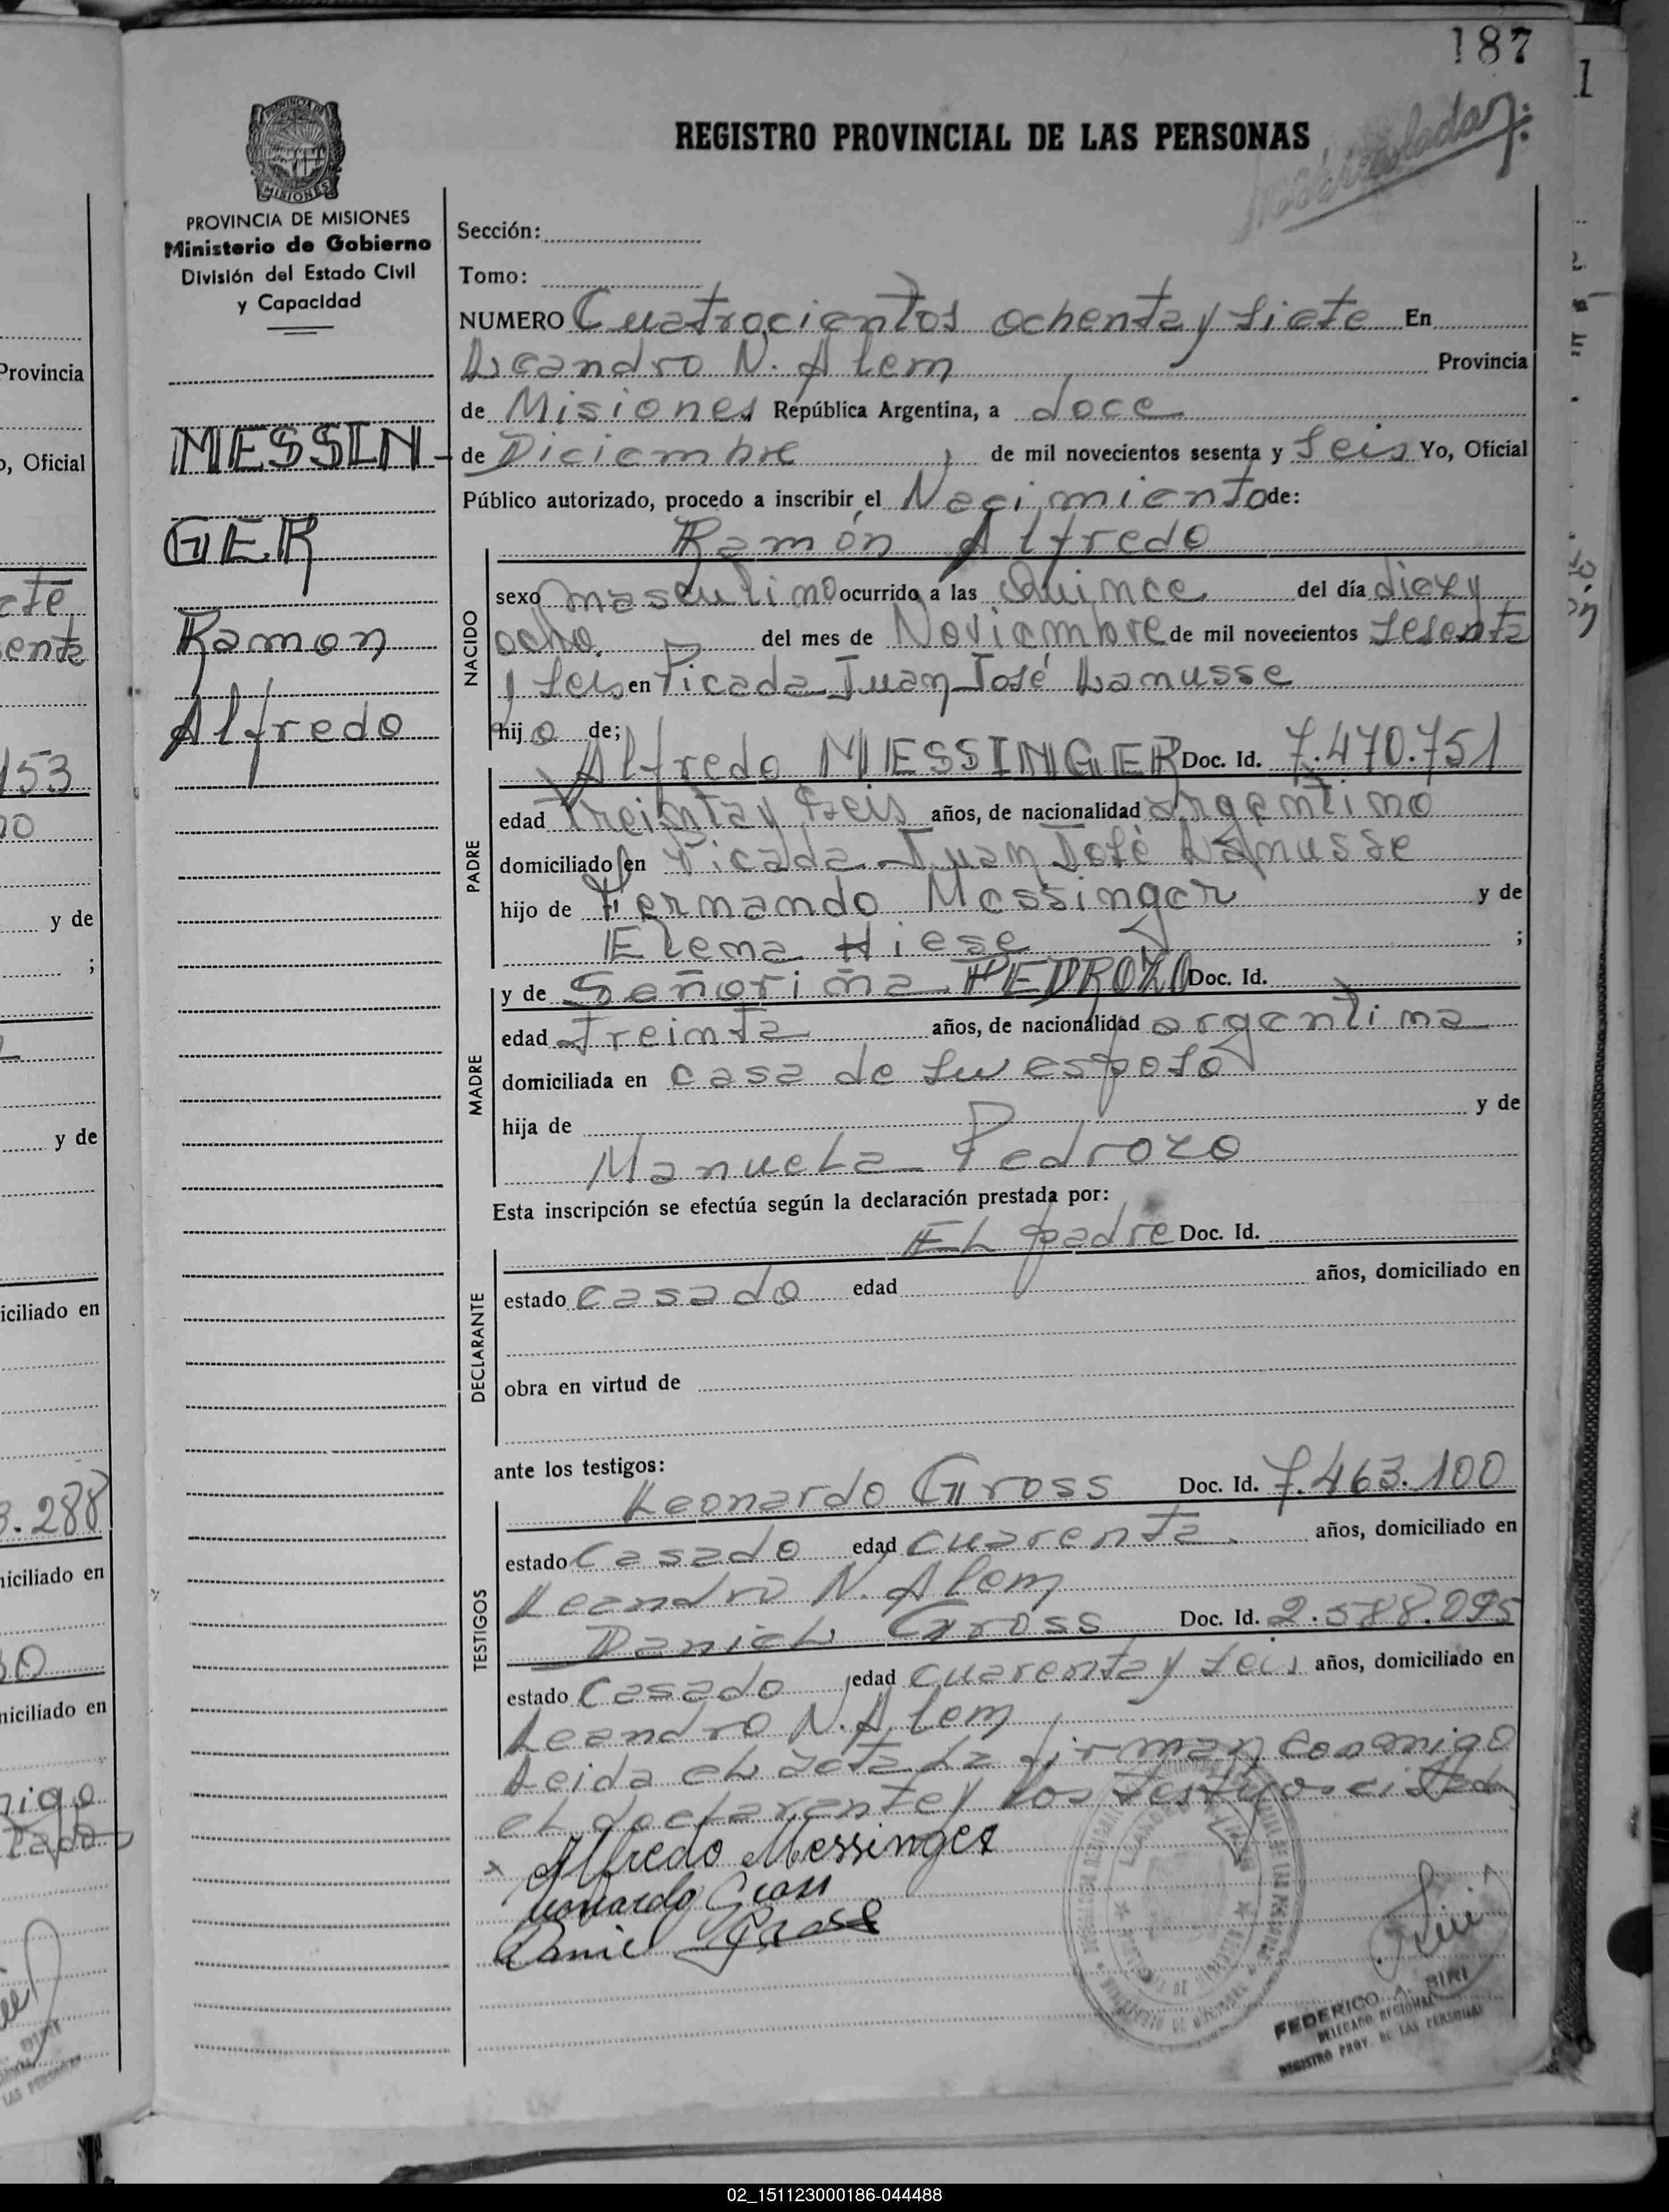 187
REGISTRO PROVINCIAL DE LAS PERSONAS
PROVINCIA DE MISIONES
Ministerio de Gobierno
División del Estado Civil
y Capacidad
MESSIN-
GER
Ramon
Alfredo
Sección:
Tomo:
NUMERO Cuatrocientos ochenta y siete En
Leandro N. Alem Provincia
de Misiones República Argentina, a doce
de Diciembre de mil novecientos sesenta y seis Yo, Oficial
Público autorizado, procedo a inscribir el Nacimiento de:
Ramón Alfredo
NACIDO
sexo masculino ocurrido a las Quince del día diez y
ocho. del mes de Noviembre de mil novecientos sesenta
y seis en Picada Juan José Lanusse
hijo de;
PADRE
Alfredo MESSINGER Doc. Id. 7.470.751
edad treinta y seis años, de nacionalidad argentino
domiciliado en Picada Juan José Lanusse
hijo de Fernando Messinger y de
Elena Hiese ;
MADRE
y de Señoriña PEDROZO Doc. Id.
edad treinta años, de nacionalidad argentina
domiciliada en casa de su esposo
hija de y de
Manuela Pedrozo
Esta inscripción se efectúa según la declaración prestada por:
DECLARANTE
El padre Doc. Id.
estado casado edad años, domiciliado en
obra en virtud de
ante los testigos:
TESTIGOS
Leonardo Gross Doc. Id. 7.463.100
estado Casado edad cuarenta. años, domiciliado en
Leandro N. Alem
Daniel Gross Doc. Id. 2.588.095
estado Casado edad cuarenta y seis años, domiciliado en
Leandro N. Alem
Leida el acta la firman conmigo
el declarante y los testigos citados
x Alfredo Messinger
Leonardo Gross
Daniel Gross
FEDERICO A. SIRI
DELEGADO REGIONAL
REGISTRO PROV. DE LAS PERSONAS
Provincia
o, Oficial
cte
enta
153
no
y de
;
y de
iciliado en
3.288
niciliado en
30
niciliado en
nigo
tado
02_151123000186-044488